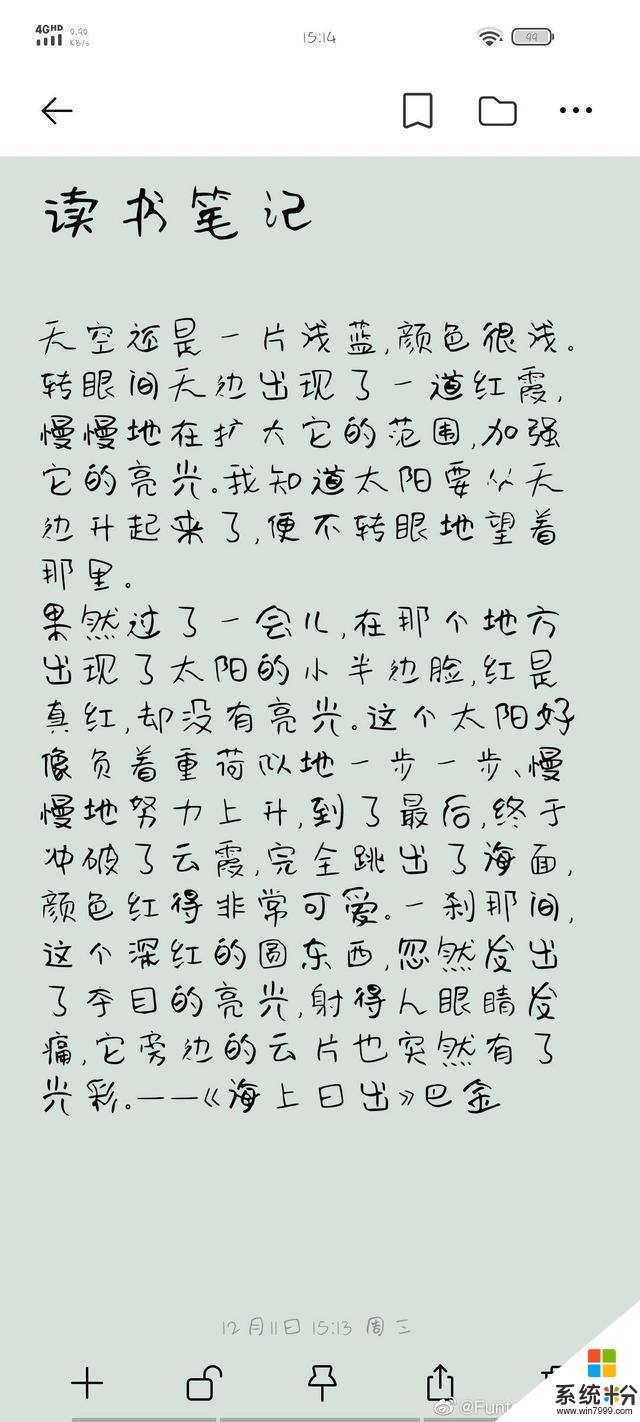 4G HD 0.90 KB/s 15:14 99
读书笔记
天空还是一片浅蓝,颜色很浅。
转眼间天边出现了一道红霞,
慢慢地在扩大它的范围,加强
它的亮光。我知道太阳要从天
边升起来了,便不转眼地望着
那里。
果然过了一会儿,在那个地方
出现了太阳的小半边脸,红是
真红,却没有亮光。这个太阳好
像负着重荷似地一步一步、慢
慢地努力上升,到了最后,终于
冲破了云霞,完全跳出了海面,
颜色红得非常可爱。一刹那间,
这个深红的圆东西,忽然发出
了夺目的亮光,射得人眼睛发
痛,它旁边的云片也突然有了
光彩。——《海上日出》巴金
12月11日 15:13 周三
@Funt
系统粉
www.win7999.com